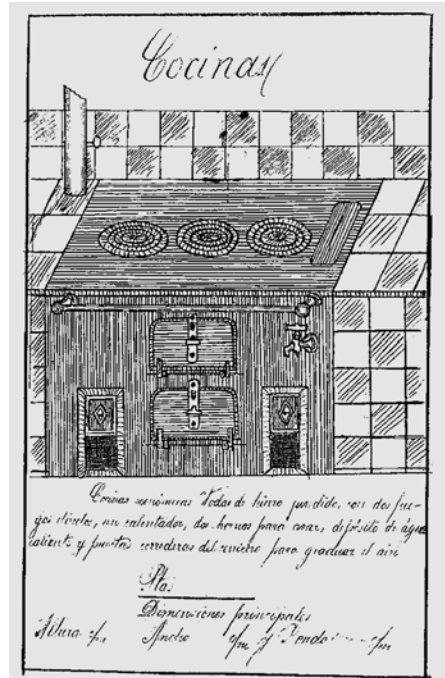 Cocinas
Cocinas económicas todas de hierro fundido, con dos fue-
gos directos, un calentador, dos hornos para asar, depósito de agua
caliente y puertas correderas del cenicero para graduar el aire
Dimensiones principales
Altura c/m Ancho c/m y Fondo c/m